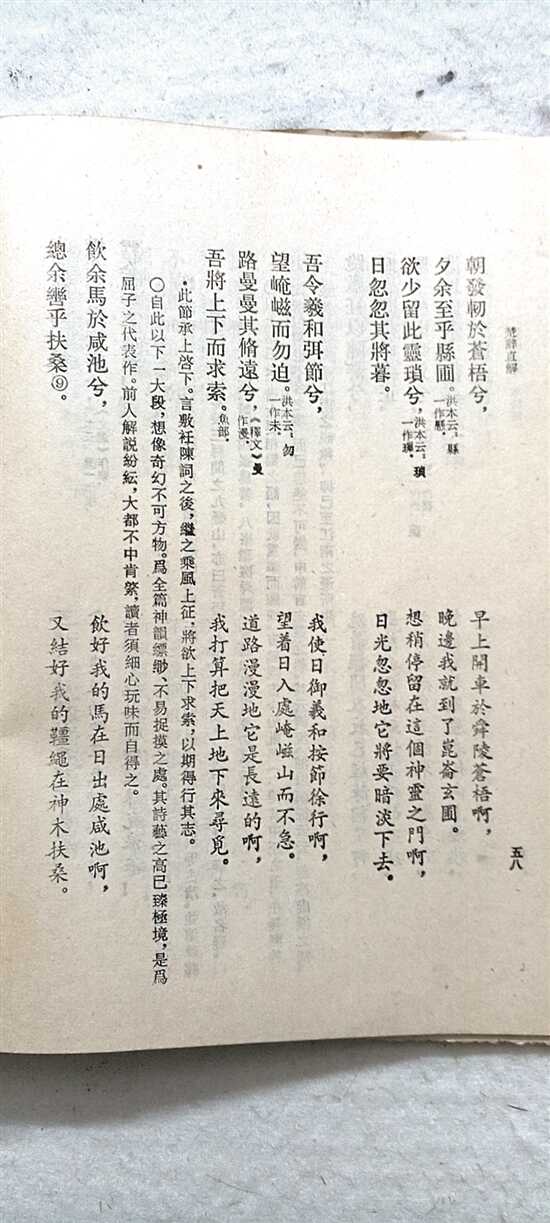 楚辭直解
五八
朝發軔於蒼梧兮，
早上開車於舜陵蒼梧啊，
夕余至乎縣圃。洪本云：縣一作懸。
晚邊我就到了崑崙玄圃。
欲少留此靈瑣兮，洪本云：瑣一作璅。
想稍停留在這個神靈之門啊，
日忽忽其將暮。
日光忽忽地它將要暗淡下去。
吾令羲和弭節兮，
我使日御羲和按節徐行啊，
望崦嵫而勿迫。洪本云：勿一作未。
望着日入處崦嵫山而不急。
路曼曼其脩遠兮，《釋文》曼作漫。
道路漫漫地它是長遠的啊，
吾將上下而求索。魚部。
我打算把天上地下來尋覓。
·此節承上啓下。言敷衽陳詞之後，繼之乘風上征，將欲上下求索，以期得行其志。
○自此以下一大段，想像奇幻不可方物。爲全篇神韻縹緲、不易捉摸之處。其詩藝之高已臻極境，是爲
屈子之代表作。前人解説紛紜，大都不中肯綮，讀者須細心玩味而自得之。
飲余馬於咸池兮，
飲好我的馬在日出處咸池啊，
總余轡乎扶桑⑨。
又結好我的韁繩在神木扶桑。